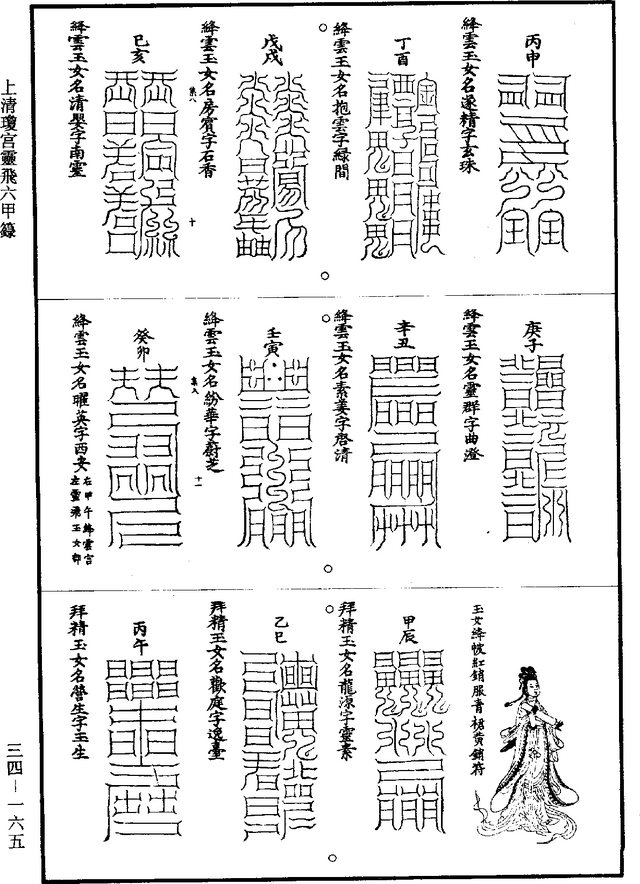 上清瓊宮靈飛六甲籙
三四－一六五
丙申
絳雲玉女名遂精字玄珠
丁酉
絳雲玉女名抱雲字綠間
戊戌
絳雲玉女名房賓字石香
集八
十
己亥
絳雲玉女名清嬰字南靈
庚子
絳雲玉女名靈群字曲澄
辛丑
絳雲玉女名素姜字啓清
壬寅
絳雲玉女名紛華字蔚芝
集八
十一
癸卯
絳雲玉女名曜英字西安
右甲午絳雲宮
左靈飛玉女部
玉女絳帔紅銷服青裙黃銷符
甲辰
拜精玉女名龍源字靈素
乙巳
拜精玉女名歡庭字逸臺
丙午
拜精玉女名營生字玉生